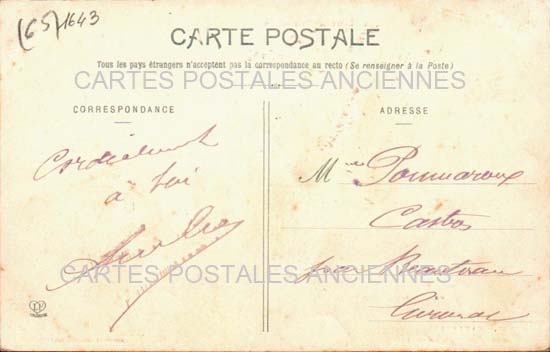 (65) 1643
CARTE POSTALE
Tous les pays étrangers n'acceptent pas la correspondance au recto (Se renseigner à la Poste)
CARTES POSTALES ANCIENNES
CORRESPONDANCE
ADRESSE
Cordialement
à toi
M
Castres
par
CARTES POSTALES ANCIENNES